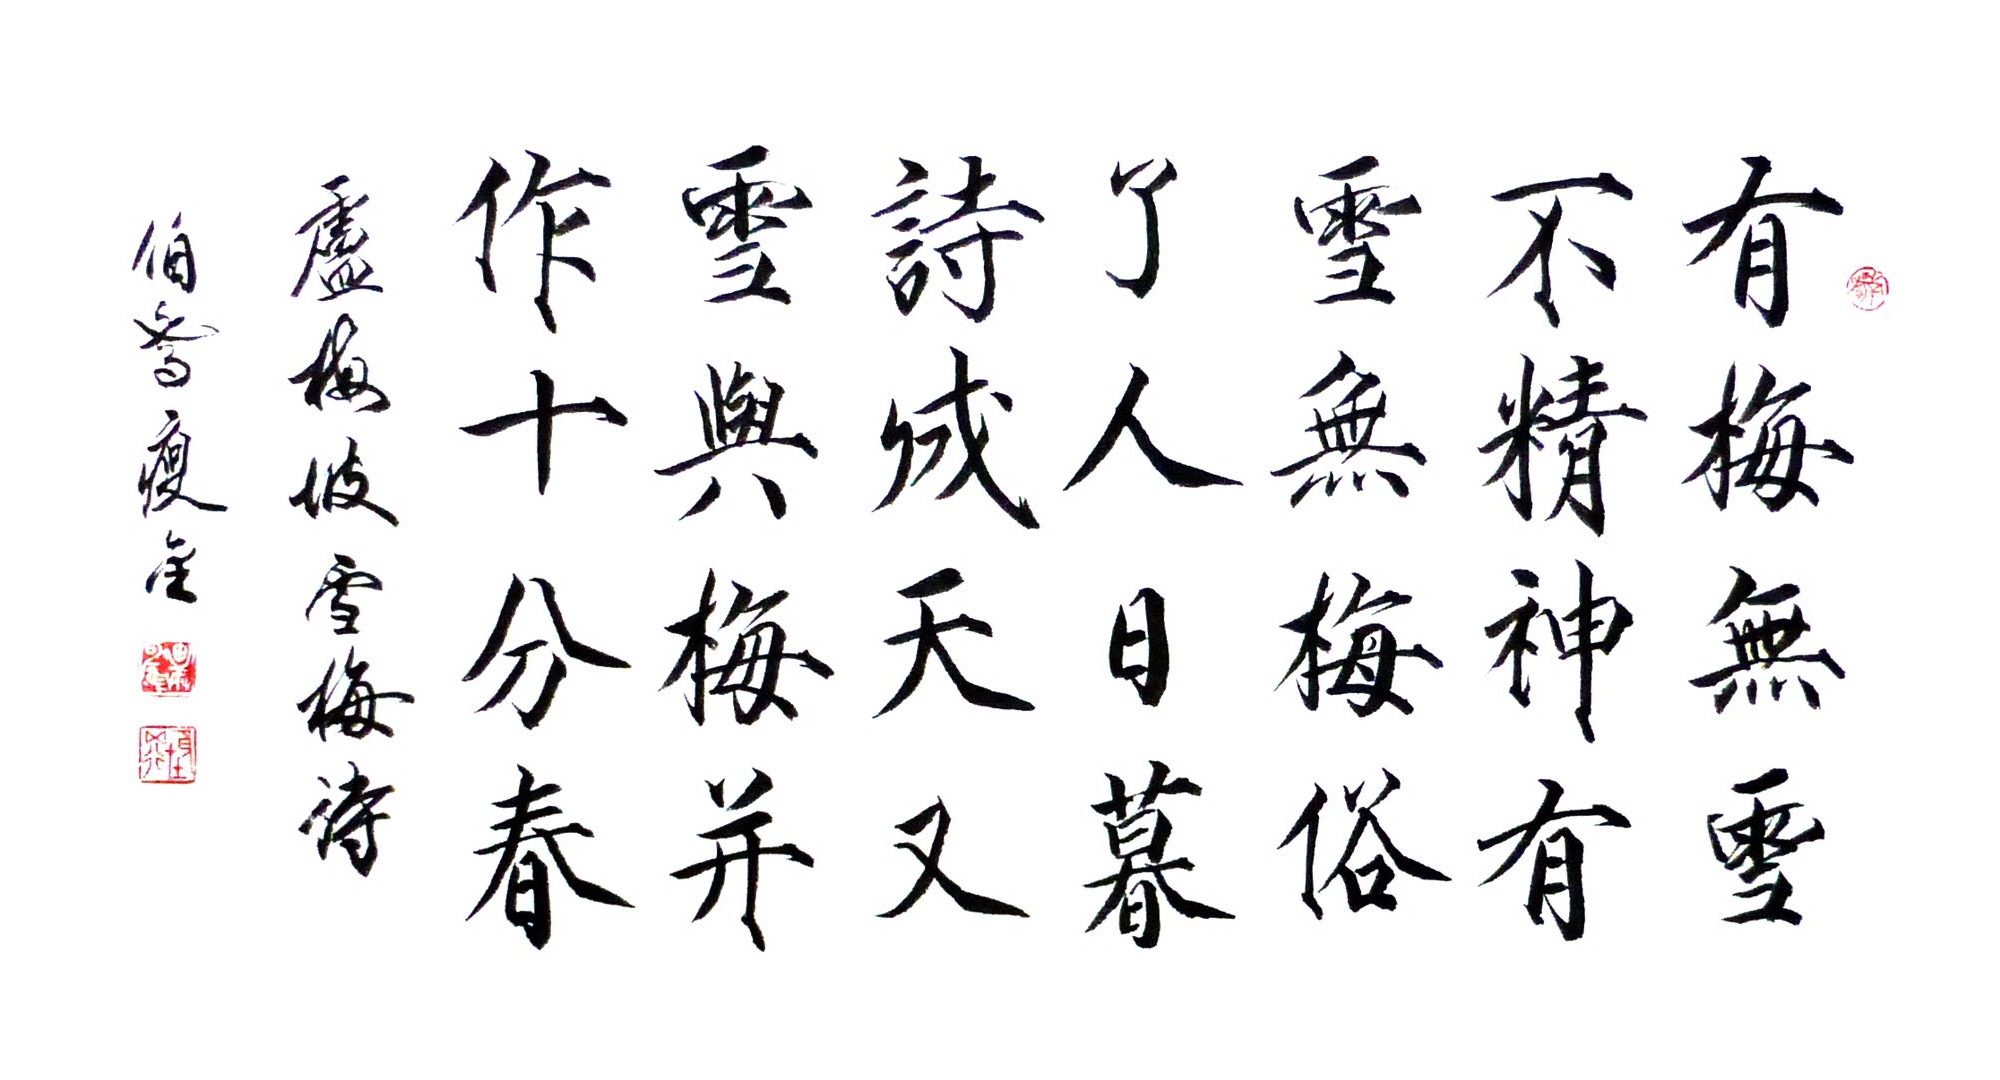 有梅無雪
不精神有
雪無梅俗
了人日暮
詩成天又
雪與梅并
作十分春
盧梅坡雪梅詩
伯喬瘦金